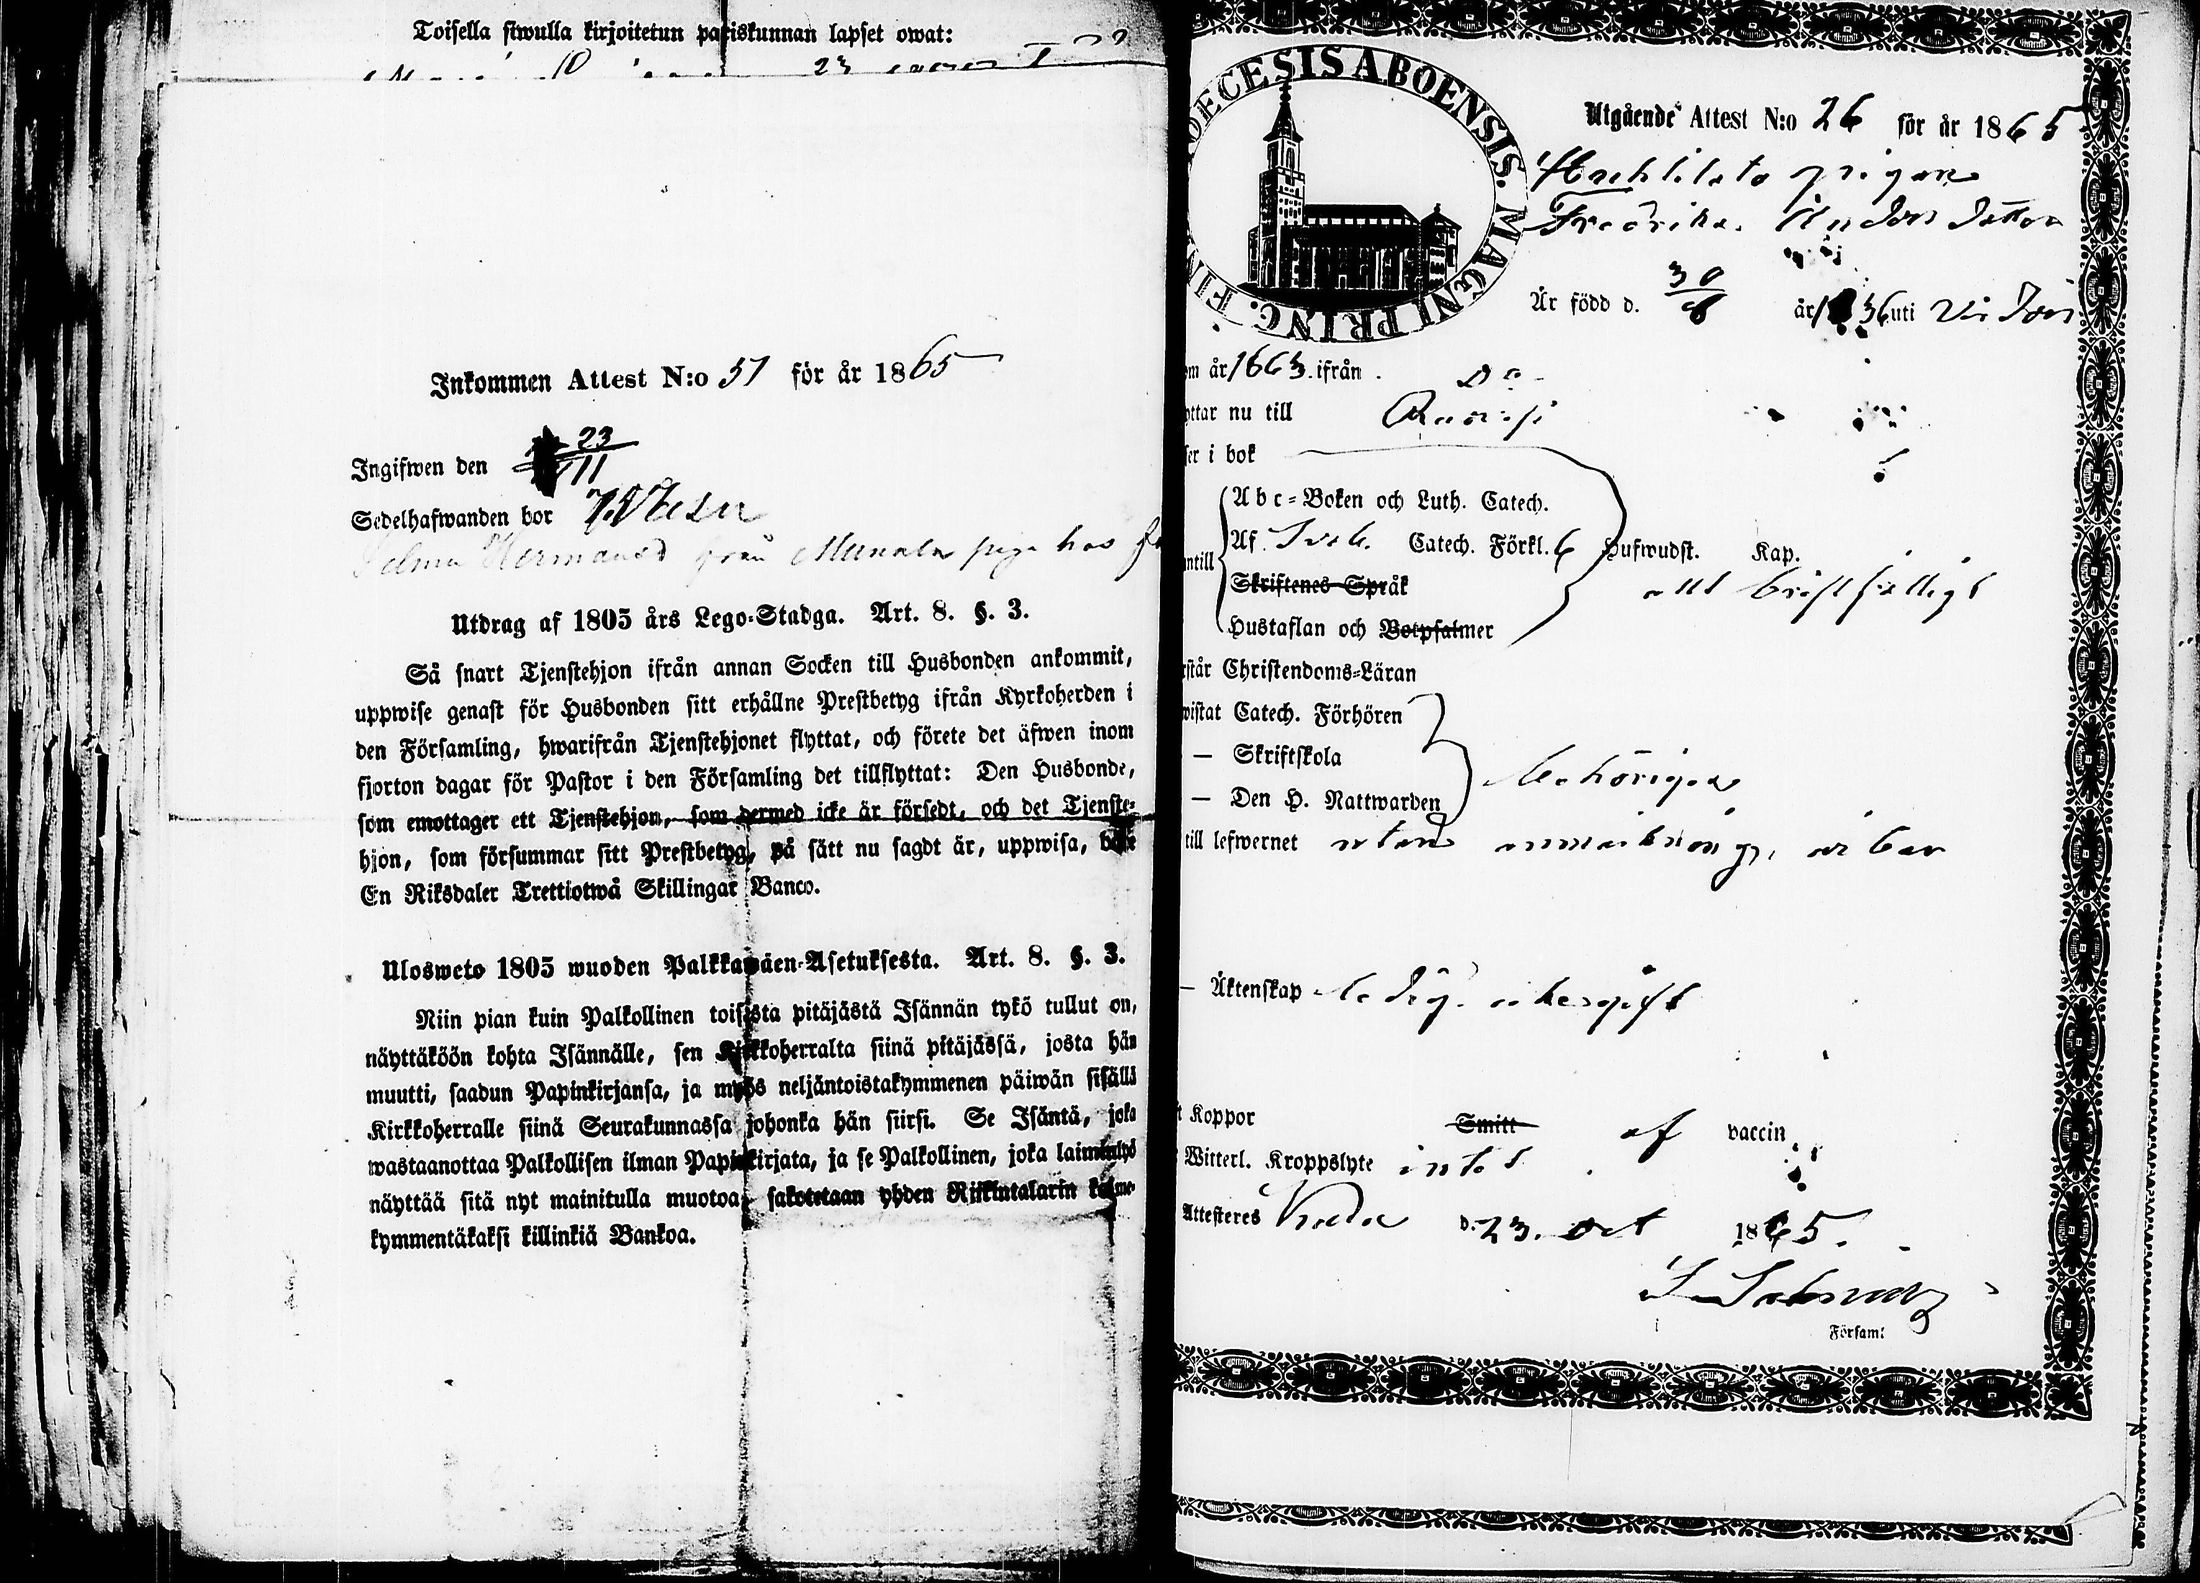 Toisella siwulla kirjoitetun pariskunnan lapset owat:
Inkommen Attest N:o 51 för år 1865
Ingifwen den 23/11
Sedelhafwanden bor
Selma Hermansd från Munala piga hos
Utdrag af 1805 års Lego-Stadga. Art. 8. §. 3.
Så snart Tjenstehjon ifrån annan Socken till Husbonden ankommit,
uppwise genast för Husbonden sitt erhållne Prestbetyg ifrån Kyrkoherden i
den Församling, hwarifrån Tjenstehjonet flyttat, och förete det äfwen inom
fjorton dagar för Pastor i den Församling det tillflyttat: Den Husbonde,
som emottager ett Tjenstehjon, som dermed icke är försedt, och det Tjenste-
hjon, som försummar sitt Prestbetyg, på sätt nu sagdt är, uppwisa, böte
En Riksdaler Trettiotwå Skillingar Banco.
Ulosweto 1805 wuoden Palkkawäen-Asetuksesta. Art. 8. §. 3.
Niin pian kuin Palkollinen toisesta pitäjästä Isännän tykö tullut on,
näyttäköön kohta Isännälle, sen Kirkkoherralta siinä pitäjässä, josta hän
muutti, saadun Papinkirjansa, ja myös neljäntoistakymmenen päiwän sisällä
Kirkkoherralle siinä Seurakunnassa johonka hän siirsi. Se Isäntä, joka
wastaanottaa Palkollisen ilman Papinkirjata, ja se Palkollinen, joka laiminlyö
näyttää sitä nyt mainitulla muotoa, sakotetaan yhden Riikintalarin kolme-
kymmentäkaksi killinkiä Bankoa.
DIOECESIS ABOENSIS. MAGNI PRINC. FIN
Utgående Attest N:o 26 för år 1865
pigan
Fredrika Andersdotter
Är född d. 30/8 år 1836 uti
om år 1863 ifrån Do
ttar nu till
ser i bok
Abc-Boken och Luth. Catech.
antill Af Sveb. Catech. Förkl. 6 Hufwudst. Kap.
Skriftenes Språk
Hustaflan och Botpsalmer
rstår Christendoms-Läran
wistat Catech. Förhören
— Skriftskola
— Den H. Nattwarden
till lefwernet utan anmärkning
— Äktenskap ledig
t Koppor Smitt af vaccin
Witterl. Kroppslyte intet
Attesteres d. 23. Oct 1865.
Församl